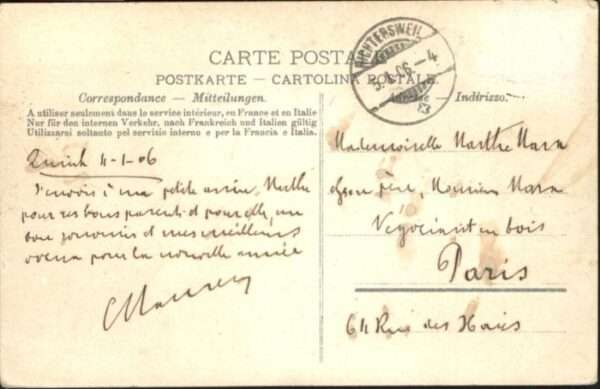 CARTE POSTALE
POSTKARTE — CARTOLINA POSTALE.
Correspondance — Mitteilungen.
A utiliser seulement dans le service intérieur, en France et en Italie
Nur für den internen Verkehr, nach Frankreich und Italien gültig
Utilizzarsi soltanto pel servizio interno e per la Francia e Italia.
Zurich 4-1-06
J'envois à ma petite amie, Marthe
pour ses bons parents et pour elle, un
bon souvenir et mes meilleurs
voeux pour la nouvelle année
RICHTERSWEIL
06 – 4
Adresse — Indirizzo.
Mademoiselle Marthe
chez son père, Monsieur
Négociant en bois
Paris
64 Rue des Haies